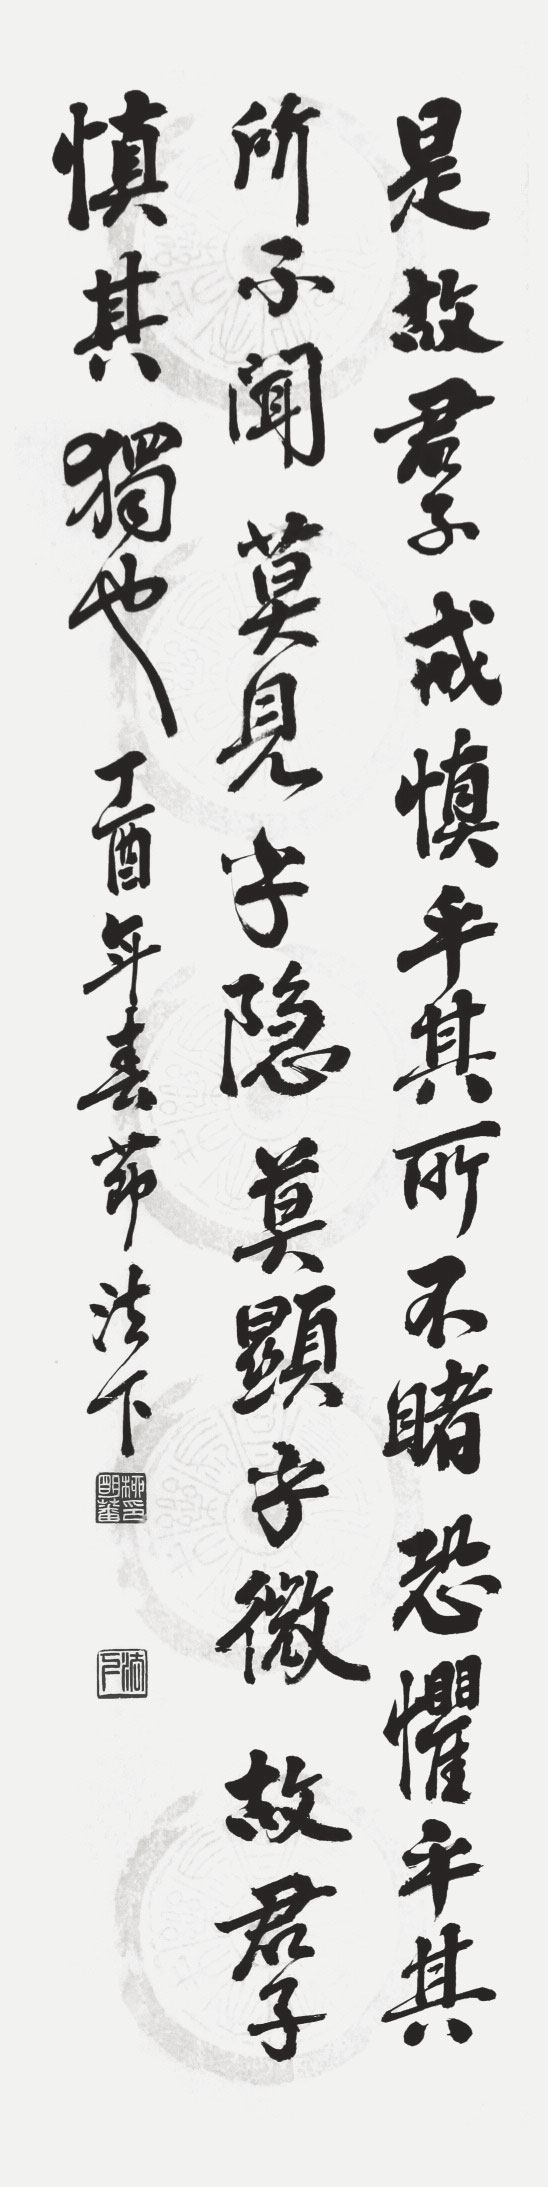 是故君子戒慎乎其所不睹恐懼乎其
所不聞莫見乎隐莫顯乎微故君子
慎其獨也丁酉年春节法下